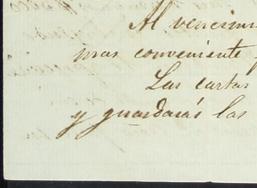 Al vencim
mas conveniente
Las cartas
y guardarás las